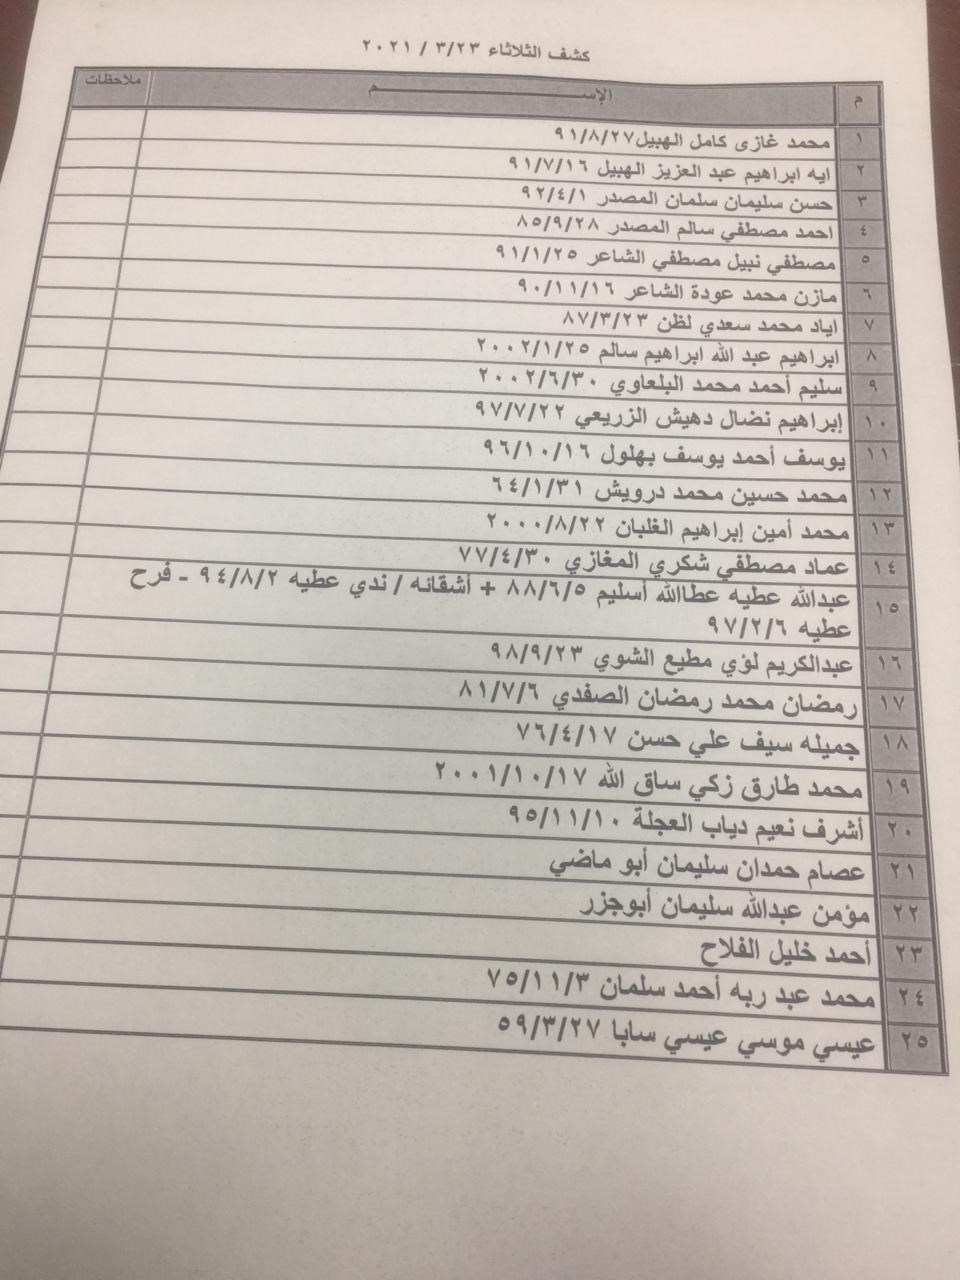 كشف الثلاثاء ٢٣/٣ / ٢٠٢١
م الإســـــــــم ملاحظات
١ محمد غازى كامل الهبيل٩١/٨/٢٧
٢ ايه ابراهيم عبد العزيز الهبيل ٩١/٧/١٦
٣ حسن سليمان سلمان المصدر ٩٢/٤/١
٤ احمد مصطفي سالم المصدر ٨٥/٩/٢٨
٥ مصطفي نبيل مصطفي الشاعر ٩١/١/٢٥
٦ مازن محمد عودة الشاعر ٩٠/١١/١٦
٧ اياد محمد سعدي لظن ٨٧/٣/٢٣
٨ ابراهيم عبد الله ابراهيم سالم ٢٠٠٢/١/٢٥
٩ سليم أحمد محمد البلعاوي ٢٠٠٢/٦/٣٠
١٠ إبراهيم نضال دهيش الزريعي ٩٧/٧/٢٢
١١ يوسف أحمد يوسف بهلول ٩٦/١٠/١٦
١٢ محمد حسين محمد درويش ٦٤/١/٣١
١٣ محمد أمين إبراهيم الغلبان ٢٠٠٠/٨/٢٢
١٤ عماد مصطفي شكري المغازي ٧٧/٤/٣٠
١٥ عبدالله عطيه عطاالله أسليم ٨٨/٦/٥ + أشقائه / ندي عطيه ٩٤/٨/٢ - فرح
عطيه ٩٧/٢/٦
١٦ عبدالكريم لؤي مطيع الشوي ٩٨/٩/٢٣
١٧ رمضان محمد رمضان الصفدي ٨١/٧/٦
١٨ جميله سيف علي حسن ٧٦/٤/١٧
١٩ محمد طارق زكي ساق الله ٢٠٠١/١٠/١٧
٢٠ أشرف نعيم دياب العجلة ٩٥/١١/١٠
٢١ عصام حمدان سليمان أبو ماضي
٢٢ مؤمن عبدالله سليمان أبوجزر
٢٣ أحمد خليل الفلاح
٢٤ محمد عبد ربه أحمد سلمان ٧٥/١١/٣
٢٥ عيسي موسي عيسي سابا ٥٩/٣/٢٧